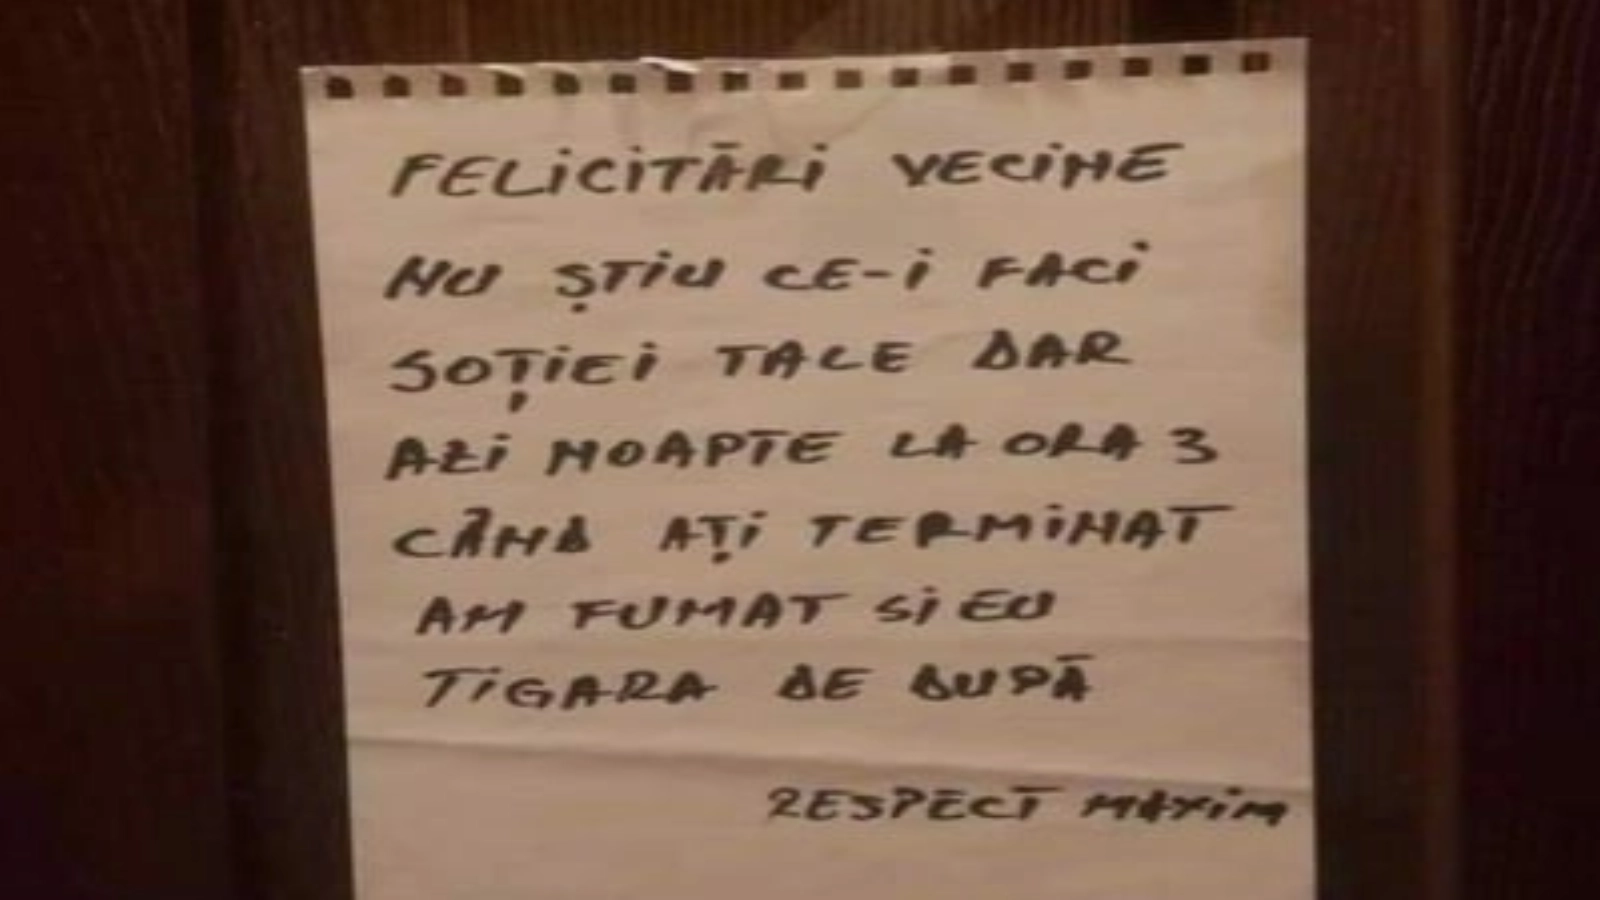 FELICITĂRI VECINE
NU ȘTIU CE-I FACI
SOȚIEI TALE DAR
AZI NOAPTE LA ORA 3
CÂND AȚI TERMINAT
AM FUMAT SI EU
TIGARA DE DUPĂ
RESPECT MAXIM